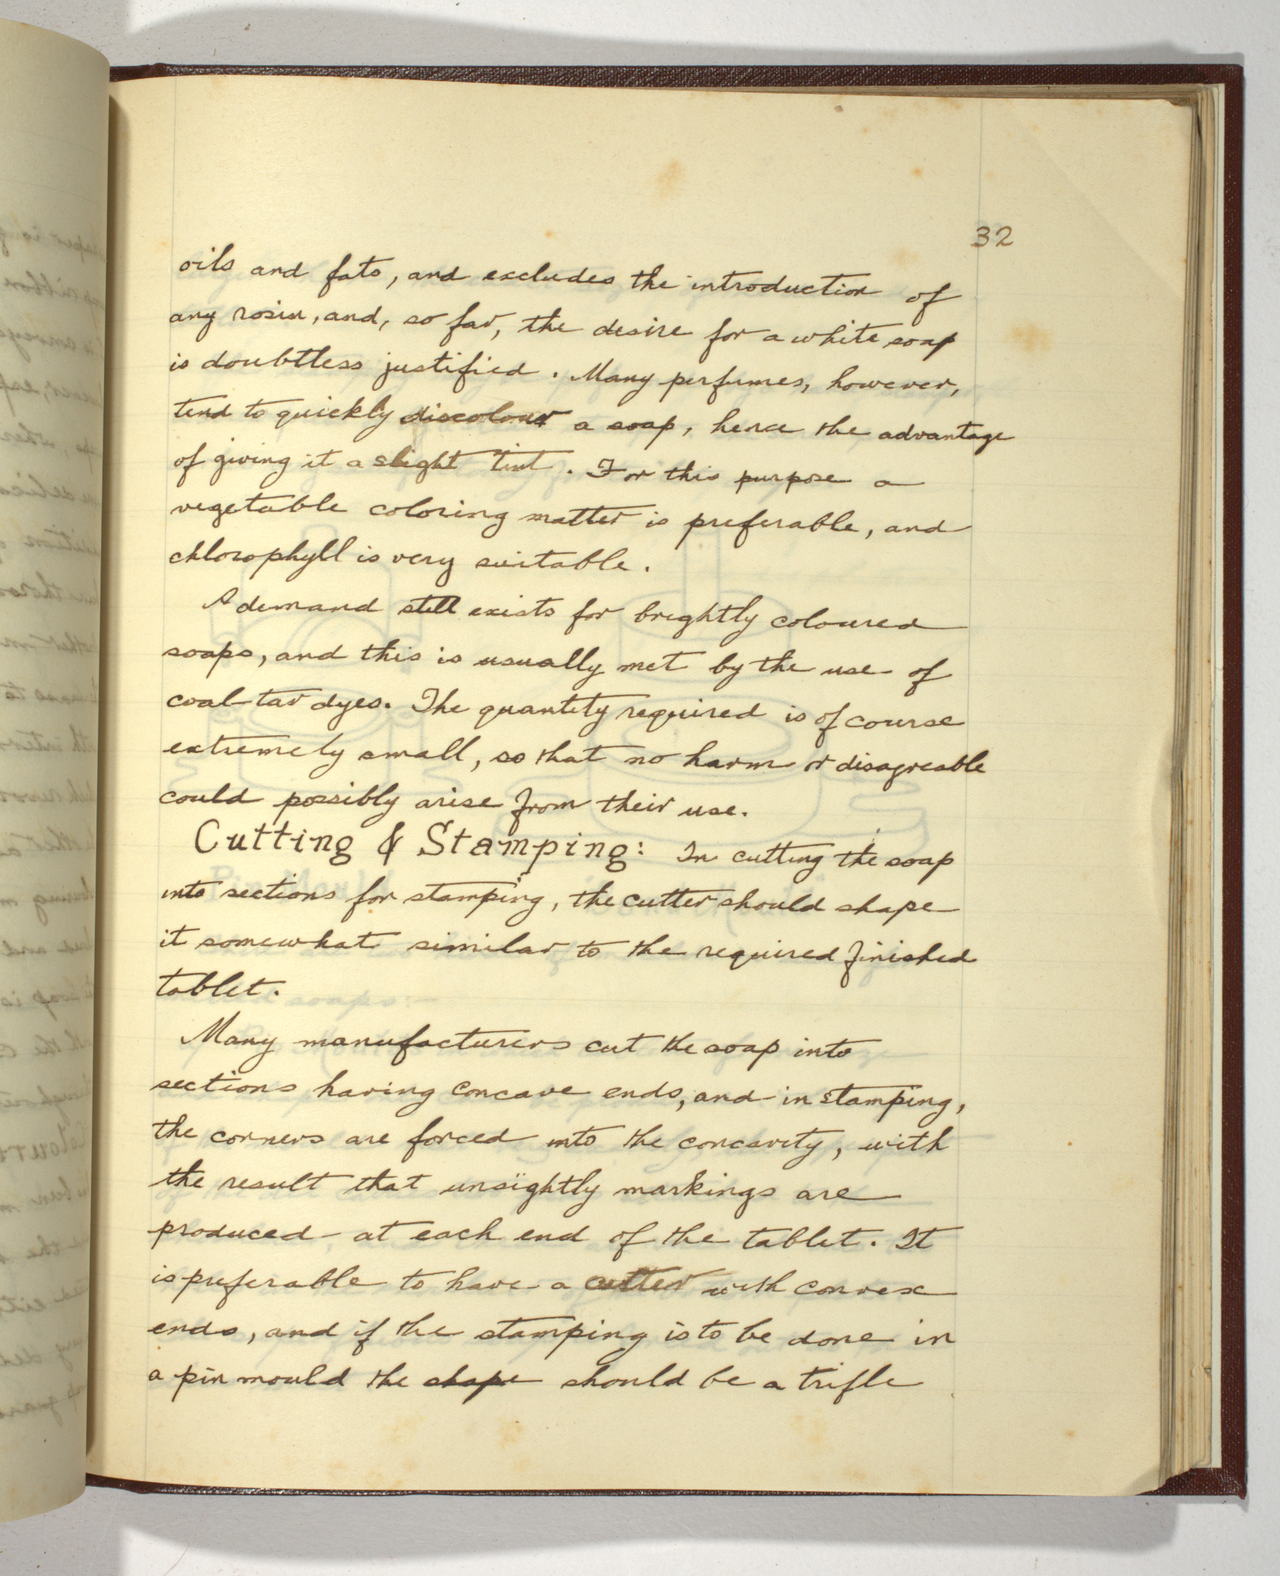 32
oils and fats, and excludes the introduction of
any rosin, and, so far, the desire for a white soap
is doubtless justified. Many perfumes, however,
tend to quickly discolour a soap, hence the advantage
of giving it a slight tint. For this purpose a
vegetable coloring matter is preferable, and
chlorophyll is very suitable.
A demand still exists for brightly coloured
soaps, and this is usually met by the use of
coal-tar dyes. The quantity required is of course
extremely small, so that no harm or disagreable
could possibly arise from their use.
Cutting & Stamping: In cutting the soap
into sections for stamping, the cutter should shape
it somewhat similar to the required finished
tablet.
Many manufacturers cut the soap into
sections having concave ends, and in stamping,
the corners are forced into the concavity, with
the result that unsightly markings are
produced at each end of the tablet. It
is preferable to have a cutter with convex
ends, and if the stamping is to be done in
a pin mould the shape should be a trifle